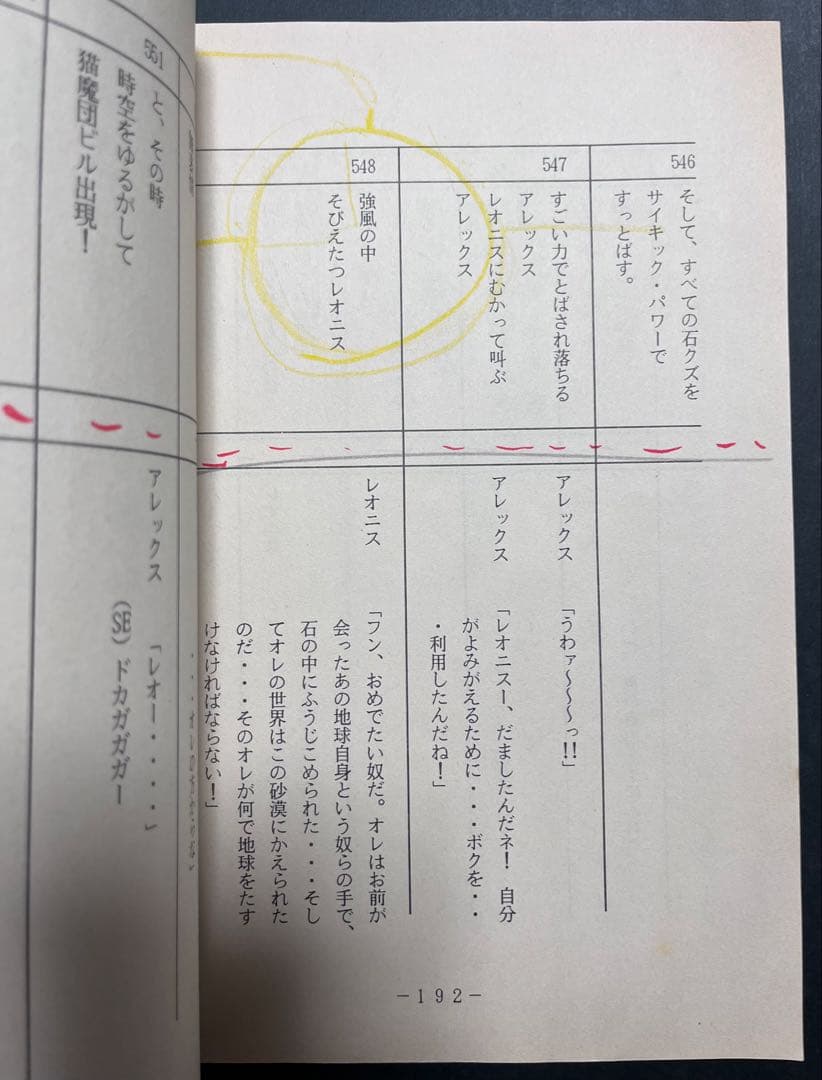 546
そして、すべての石クズを
サイキック・パワーで
すっとばす。
547
すごい力でとばされ落ちる
アレックス
レオニスにむかって叫ぶ
アレックス
アレックス
「うわァ～～～っ!!」
アレックス
「レオニスー、だましたんだネ！　自分
がよみがえるために・・・ボクを・・
・利用したんだね！」
548
強風の中
そびえたつレオニス
レオニス
「フン、おめでたい奴だ。オレはお前が
会ったあの地球自身という奴らの手で、
石の中にふうじこめられた・・・そし
てオレの世界はこの砂漠にかえられた
のだ・・・そのオレが何で地球をたす
けなければならない！」
－192－
551
と、その時
時空をゆるがして
猫魔団ビル出現！
アレックス
「レオー・・・・」
(SE) ドカガガガー